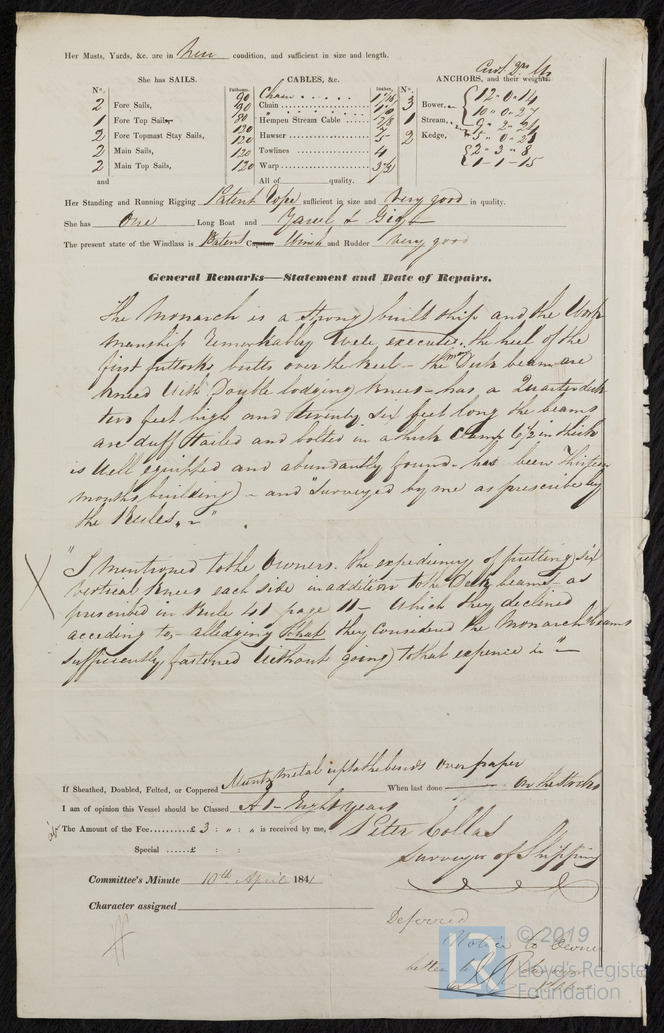 Her Masts, Yards, &c. are in New condition, and sufficient in size and length.
She has SAILS. CABLES, &c. ANCHORS, and their weights.
No. Fathoms. Inches. No.
2 Fore Sails,
1 Fore Top Sails,
2 Fore Topmast Stay Sails,
2 Main Sails,
2 Main Top Sails,
and
Chain
90 Chain
80 Hempen Stream Cable
120 Hawser
120 Towlines 4
120 Warp
All of quality.
3 Bower, 12-0-14
1 Stream,
2 Kedge,
2-3-8
1-1-15
Her Standing and Running Rigging Patent Rope sufficient in size and Very good in quality.
She has One Long Boat and Yawl & Gig
The present state of the Windlass is Patent Capstan Winch and Rudder very good
General Remarks—Statement and Date of Repairs.
The Monarch is a strong built ship and the Work
manship remarkably well executed. the heel of the
first futtocks butts over the keel - the main Deck beams are
kneed with Double lodging knees - has a Quarter deck
two feet high and seventy six feet long the beams
are duff tailed and bolted in a thick clamp 6½ in thick
is well equipped and abundantly found - has been thirteen
months building - and "surveyed by me as prescribed by
the Rules"
"I mentioned to the Owners. the expediency of putting six
vertical knees each side in addition to the Deck beams - as
prescribed in Rule 41 page 11 - which they declined
acceding to, - alledging that they considered the Monarch beams
sufficiently fastened without going to that expence in"
If Sheathed, Doubled, Felted, or Coppered Muntz metal up to the bends over paper When last done on the stocks
I am of opinion this Vessel should be Classed A1 - Eight years
The Amount of the Fee.........£ 3 : " : " is received by me, Peter Collas
Surveyor of Shipping
Special ......£ : :
Committee's Minute 10th April 1841
Character assigned
Deferred
Notice to Owner
© 2019
Lloyd's Register
Foundation
LR